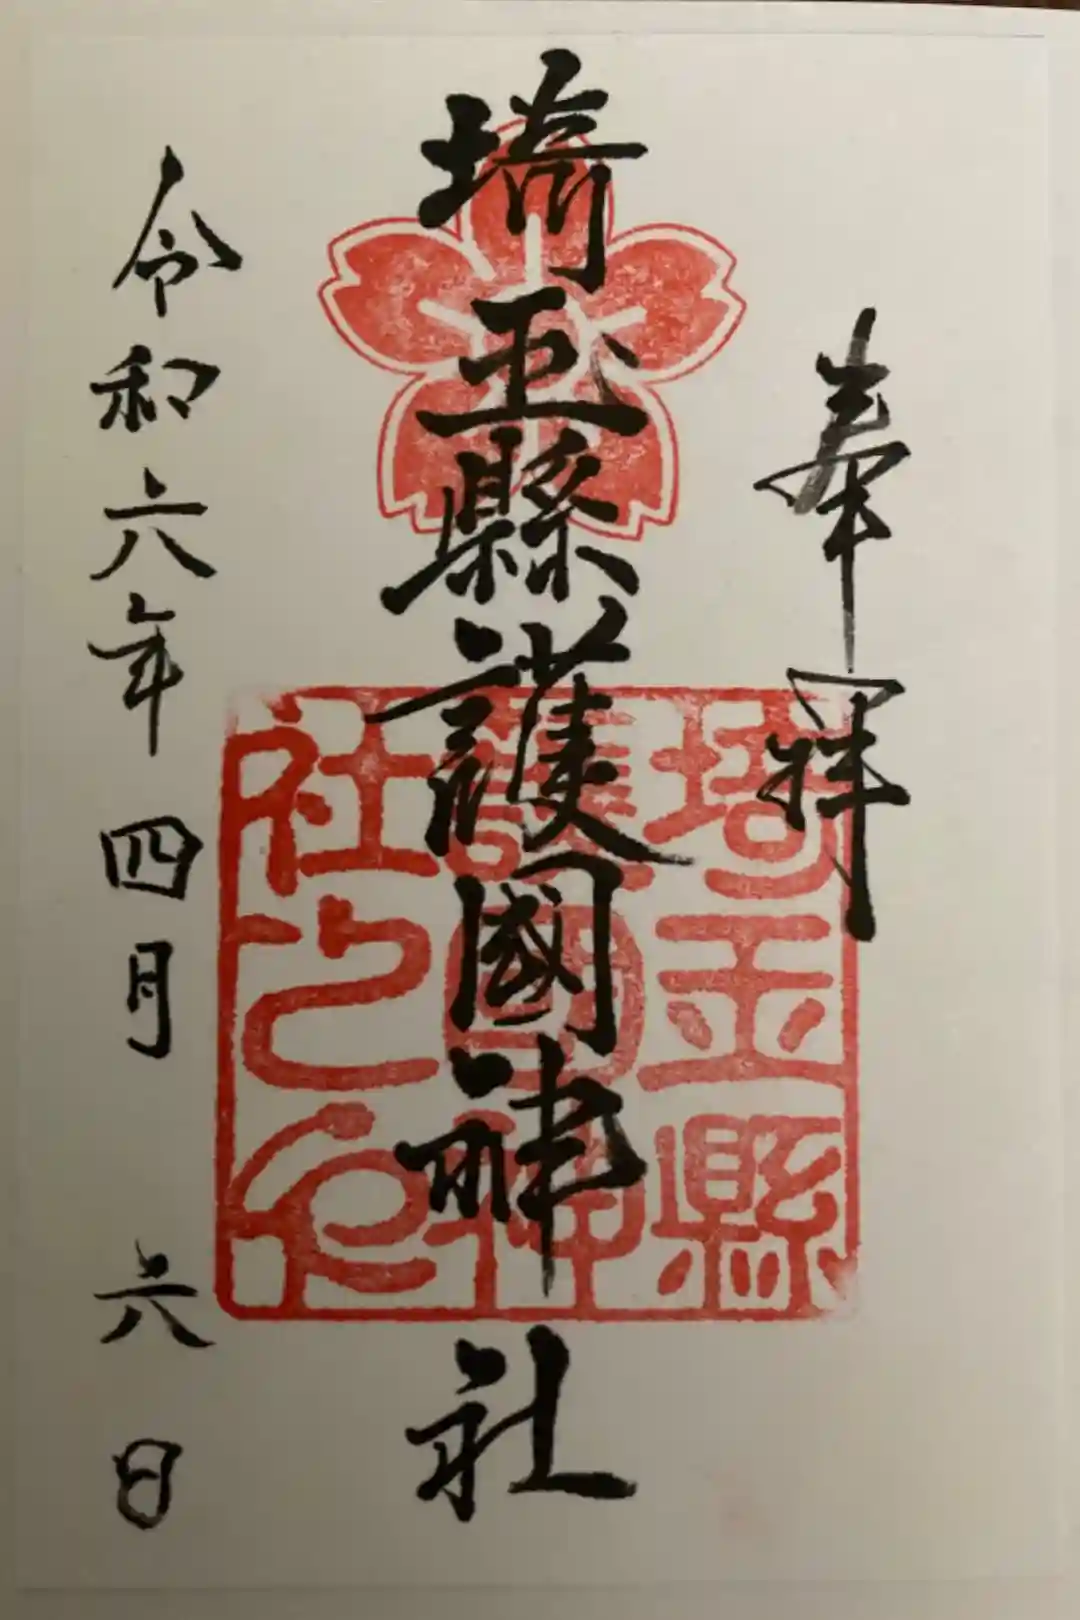 奉拝
埼玉縣護國神社
埼玉縣
護国神
社之印
令和六年四月六日